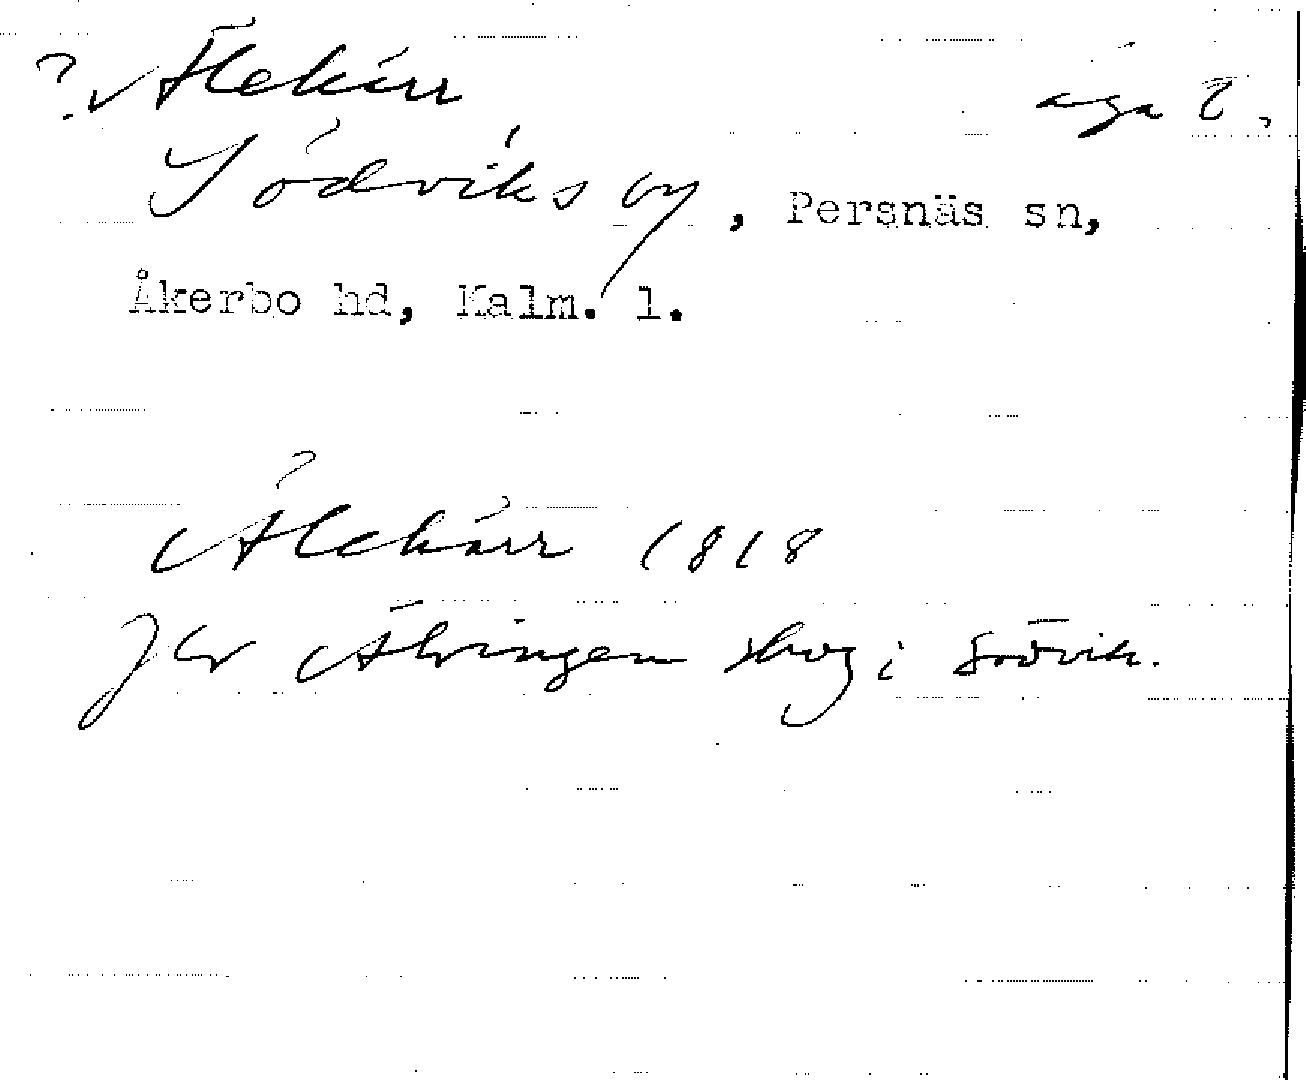 ? Älekärr äga ?,
Södviks by, Persnäs sn,
Åkerbo hd, Kalm. l.
Ålekärr 1818
Jfr Älvingen skog i Södvik.